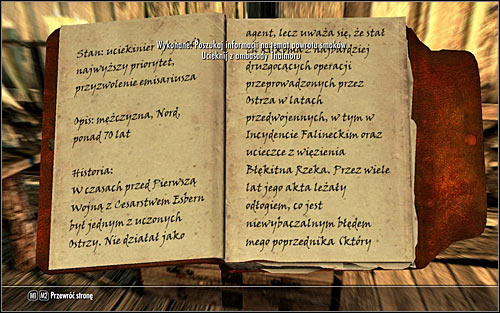 Stan: uciekinier
najwyższy priorytet,
przyzwolenie emisariusza
Opis: mężczyzna, Nord,
ponad 70 lat
Historia:
W czasach przed Pierwszą
Wojną z Cesarstwem Esbern
był jednym z uczonych
Ostrzy. Nie działał jako
Wykonane: Poszukaj informacji na temat powrotu smoków
Ucieknij z ambasady Thalmoru
agent, lecz uważa się, że stał
najbardziej
druzgocących operacji
przeprowadzonych przez
Ostrza w latach
przedwojennych, w tym w
Incydencie Falineckim oraz
ucieczce z więzienia
Błękitna Rzeka. Przez wiele
lat jego akta leżały
odłogiem, co jest
niewybaczalnym błędem
mego poprzednika (który
M1 M2 Przewróć stronę